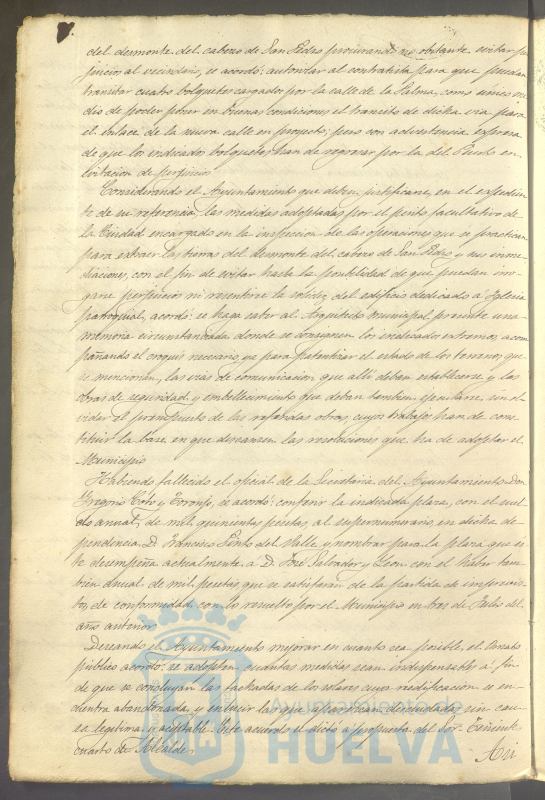 del desmonte del cabezo de San Pedro procurando no obstante evitar per-
juicios al vecindario, se acordó: autorizar al contratista para que puedan
transitar cuatro bolquetes cargados por la calle de la Palma, como único me-
dio de poder poner en buenas condiciones el transito de dicha via para
el enlace de la nueva calle en proyecto; pero con advertencia expresa
de que los indicados bolquetes han de regresar por la del Puerto en
evitacion de perjuicios
Considerando el Ayuntamiento que deben justificarse en el expedien-
te de su referencia, las medidas adoptadas por el perito facultativo de
la Ciudad encargado en la inspeccion de las operaciones que se practican
para extraer las tierras del desmonte del cabezo de San Pedro y sus inme-
diaciones, con el fin de evitar hasta la posibilidad de que puedan irro-
garse perjuicios ni resentirse la solidez del edificio dedicado á Iglesia
parroquial, acordó: se haga saber al Arquitecto Municipal presente una
memoria circunstanciada donde se consignen los indicados extremos, acom-
pañando el croquis necesario, ya para patentizar el estado de los terrenos que
se mencionan, las vias de comunicacion que alli deban establecerse y las
obras de seguridad y embellecimiento que deban tambien ejecutarse, sin ol-
vidar el presupuesto de las referidas obras, cuyos trabajos han de cons-
tituir la base en que descansen las resoluciones que ha de adoptar el
Municipio
Habiendo fallecido el oficial de la Secretaria del Ayuntamiento Don
Gregorio Toro y Toronjo, se acordó: conferir la indicada plaza, con el suel-
do anual de mil quinientas pesetas, al supernumerario en dicha de-
pendencia D. Francisco Pinto del Valle y nombrar para la plaza que es-
te desempeña actualmente a D. José Salvador y Leon con el haber tam-
bien anual de mil pesetas que se satisfaran de la partida de imprevis-
tos, de conformidad con lo resuelto por el Municipio en tres de Julio del
año anterior
Deseando el Ayuntamiento mejorar en cuanto sea posible, el ornato
público acordó: se adopten cuantas medidas sean indispensables á fin
de que se concluyan las fachadas de los solares cuya reedificacion se en-
cuentra abandonada, y enlucir las que aparezcan descuidadas sin cau-
sa legitima y aceptable. Este acuerdo se dictó a propuesta del Sor. Teniente
cuarto de Alcalde
Ayuntamiento de
HUELVA